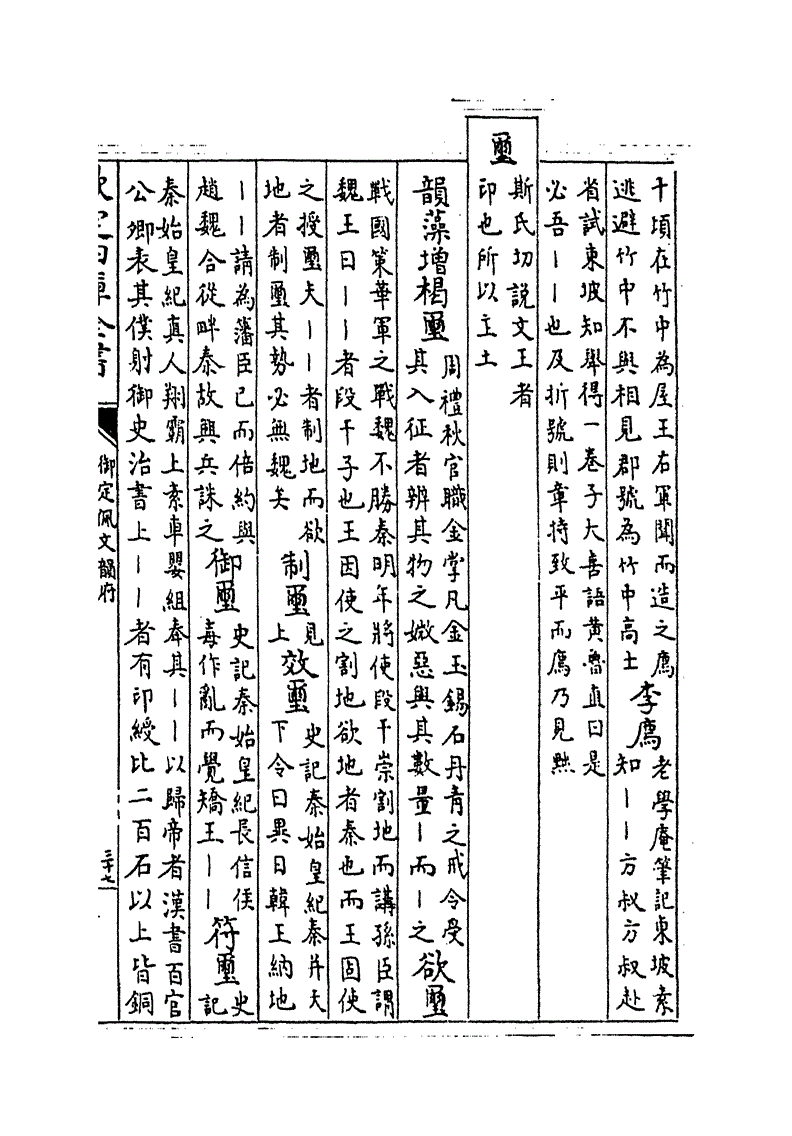 千頃在竹中為屋王右軍聞而造之廌
逃避竹中不與相見郡號為竹中高士
李廌
老學庵筆記東坡素
知——方叔方叔赴
省試東坡知舉得一卷子大喜語黄魯直曰是
必吾——也及拆號則章持致平而廌乃見黜
璽
斯氏切説文王者
印也所以主土
韻藻增楬璽
周禮秋官職金掌凡金玉錫石丹青之戒令受
其入征者辨其物之媺惡與其數量—而—之
欲璽
戰國策華軍之戰魏不勝秦明年將使段干崇割地而講孫臣謂
魏王曰——者段干子也王因使之割地欲地者秦也而王因使
之授璽夫——者制地而欲
地者制璽其勢必無魏矣
制璽
見
上
效璽
史記秦始皇紀秦并天
下令曰異日韓王納地
——請為藩臣已而倍約與
趙魏合從畔秦故興兵誅之
御璽
史記秦始皇紀長信侯
毒作亂而覺矯王——
符璽
史
記
秦始皇紀真人翔霸上素車嬰組奉其——以歸帝者漢書百官
公卿表其僕射御史治書上——者有印綬比二百石以上皆銅
欽定四庫全書
御定佩文韻府
三十七